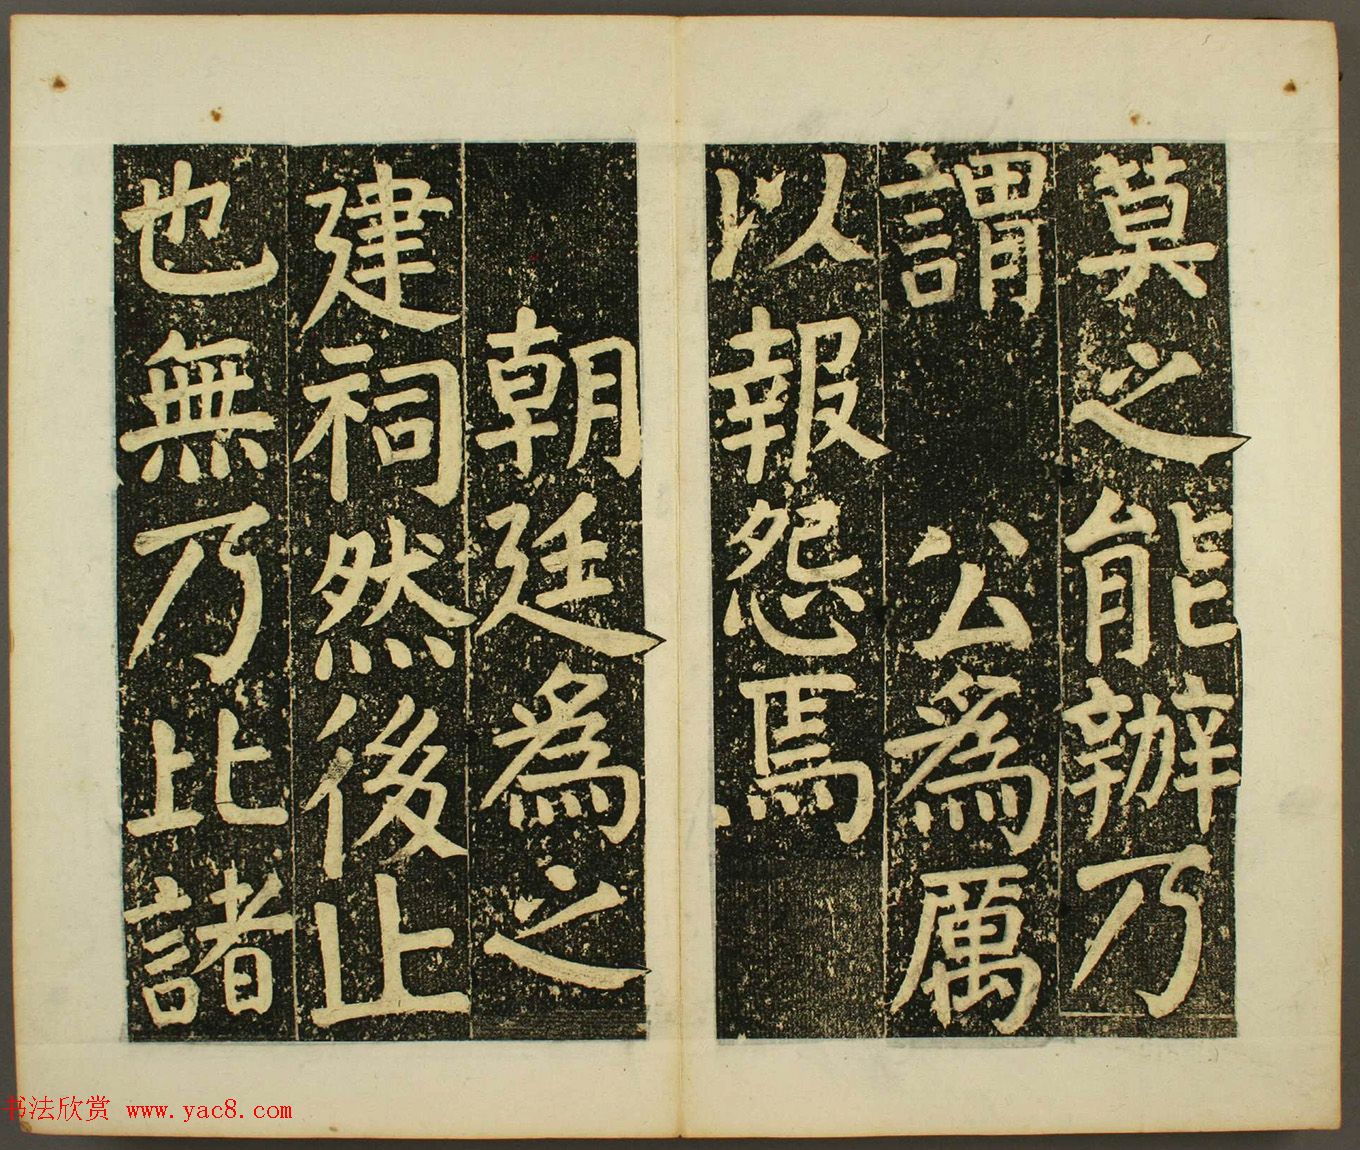 莫之能辦乃
謂公為厲
以報怨焉
朝廷為之
建祠然後止
也無乃比諸
书法欣赏 www.yac8.com